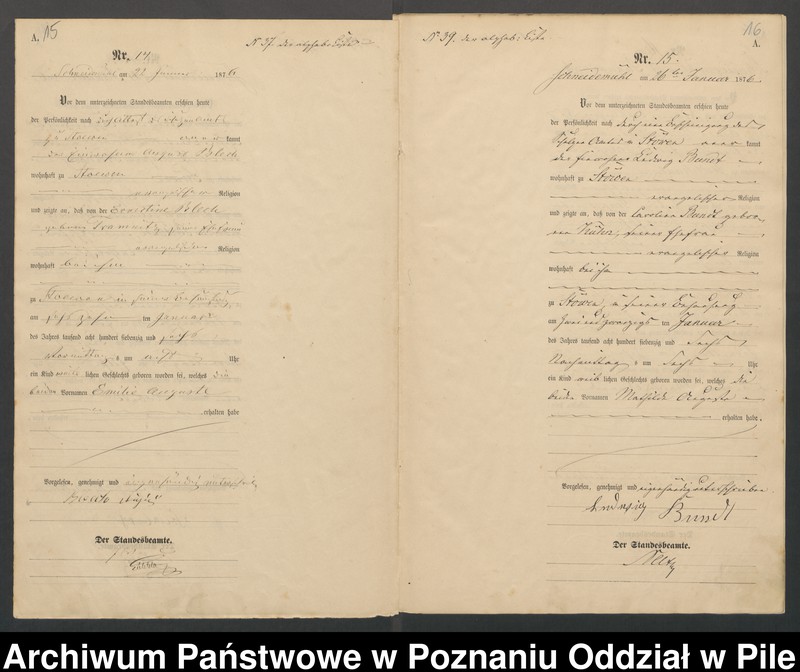 A. 15
N 37. der alphab: Liste
Nr. 14.
Schneidemühl am 22 Januar 1876.
Vor dem unterzeichneten Standesbeamten erschien heute
der Persönlichkeit nach
zu Stoewen kannt
der Einwohner August
wohnhaft zu Stoewen
evangelischer Religion
und zeigte an, daß von der Ernestine
geborene seiner Ehefrau
evangelischer Religion
wohnhaft bei ihm
zu Stoewen in seiner Behausung
am sechszehn ten Januar
des Jahres tausend acht hundert siebenzig und sechs
Vormittags um acht Uhr
ein Kind weiblichen Geschlechts geboren worden sei, welches die
beiden Vornamen Emilie Auguste
erhalten habe
Vorgelesen, genehmigt und eigenhändig unterschrieben
Der Standesbeamte.
N 39. der alphab: Liste
16
A.
Nr. 15.
Schneidemühl am 26ten Januar 1876.
Vor dem unterzeichneten Standesbeamten erschien heute
der Persönlichkeit nach durch eine Bescheinigung des
Schulzen Amtes in Stöwen kannt
der Einwohner Ludwig Bundt
wohnhaft zu Stöwen
evangelischer Religion
und zeigte an, daß von der Caroline Bundt gebor
nen seiner Ehefrau
evangelischer Religion
wohnhaft bei ihm
zu Stöwen, in seiner Behausung
am zwei und zwanzigs ten Januar
des Jahres tausend acht hundert siebenzig und sechs
Nachmittags um sechs Uhr
ein Kind weiblichen Geschlechts geboren worden sei, welches die
beiden Vornamen Mathilde Auguste
erhalten habe.
Vorgelesen, genehmigt und eigenhändig unterschrieben
Ludwig Bundt
Der Standesbeamte.
Archiwum Państwowe w Poznaniu Oddział w Pile